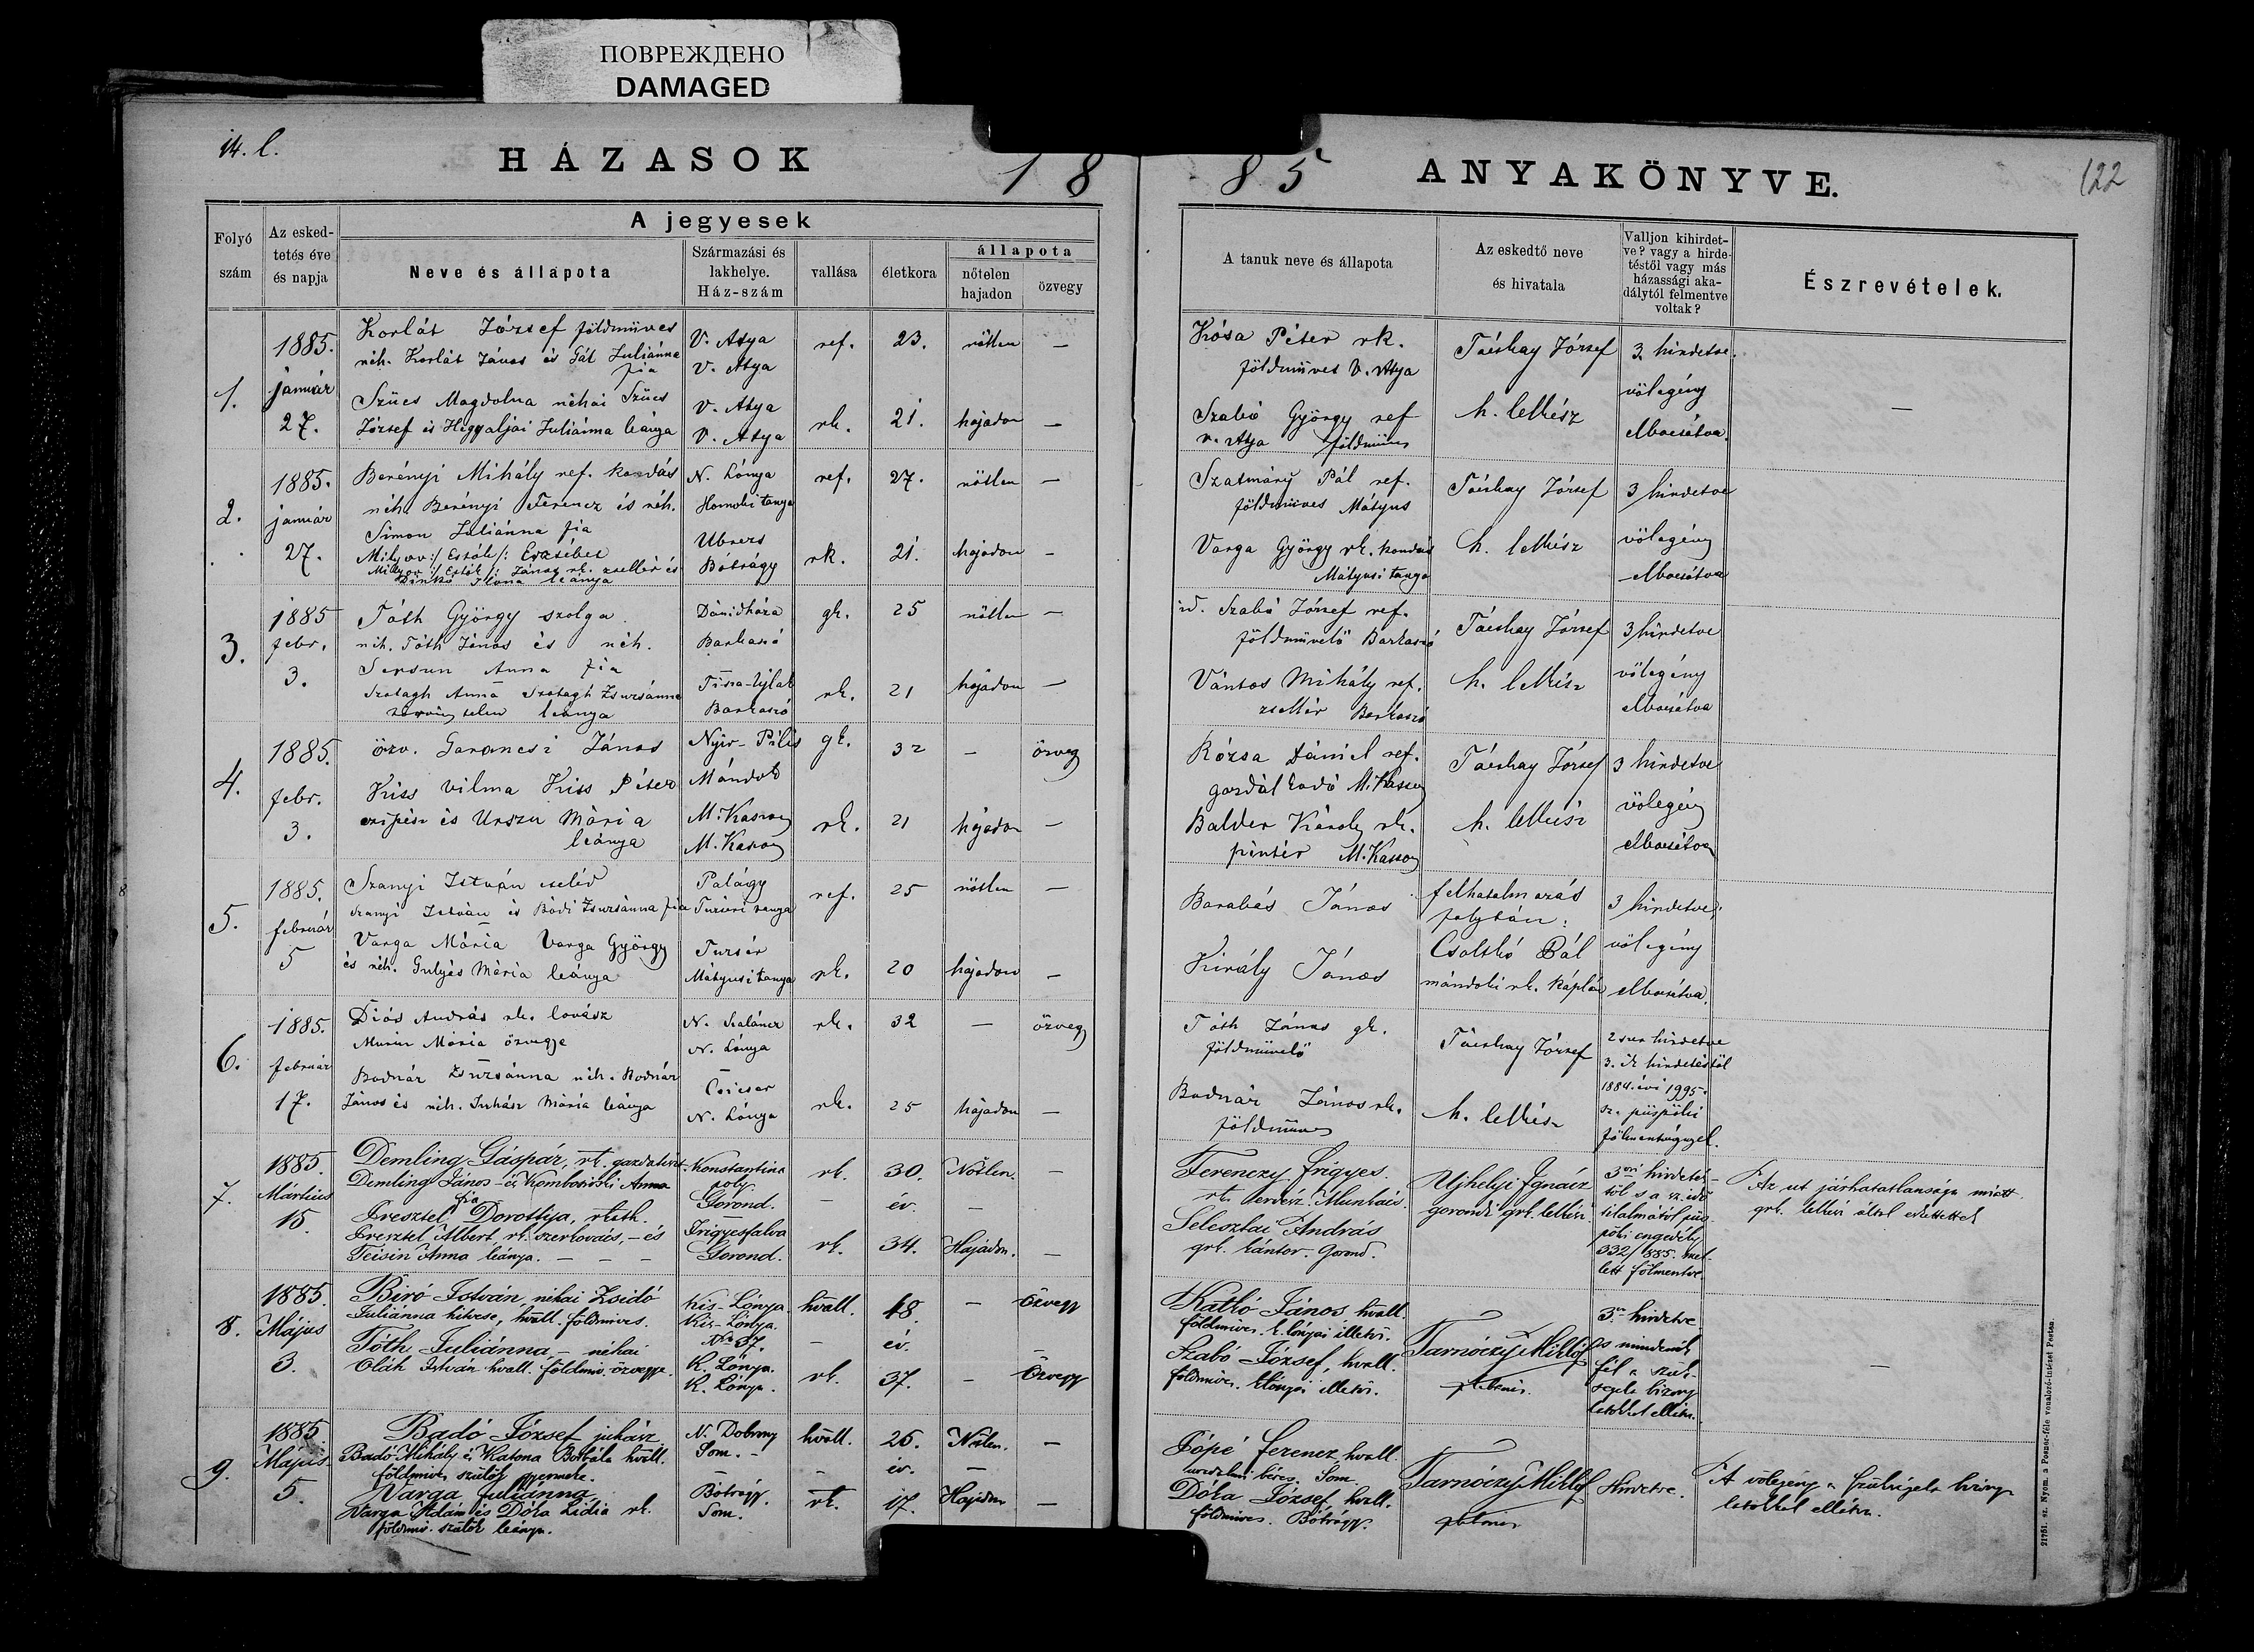 ПОВРЕЖДЕНО
DAMAGED
14. l.
HÁZASOK 18
85 ANYAKÖNYVE.
122
Folyó szám
Az esked-
tetés éve
és napja
A jegyesek
Neve és állapota
Származási és
lakhelye.
Ház-szám
vallása
életkora
állapota
nőtelen
hajadon
özvegy
A tanuk neve és állapota
Az eskedtő neve
és hivatala
Valljon kihirdet-
ve? vagy a hirde-
téstől vagy más
házassági aka-
dálytól felmentve
voltak?
Észrevételek.
1.
1885.
január
27.
Korlát József földmüves
néh. Korlát János és Gál Juliánna
fia
Szücs Magdolna néhai Szücs
József és Hegyaljai Juliánna leánya
V. Atya
V. Atya
V. Atya
V. Atya
ref.
rk.
23.
21.
nőtlen
hajadon
—
—
Kósa Péter rk.
földmüves V. Atya
Szabó György ref
v. Atya földmüves
Tácskay József
h. lelkész
3 hirdetve.
vőlegény
elbocsátva.
—
2.
1885.
január
27.
Berényi Mihály ref. kondás
néh. Berényi Ferencz és néh.
Simon Juliánna fia
Erzsébet
János rk. zsellér és
Ilona leánya
N. Lónya
Homoki tanya
Ubrezs
Bótrágy
ref.
rk.
27.
21.
nőtlen
hajadon
—
—
Szatmáry Pál ref.
földmüves Mátyus
Varga György rk. kondás
Mátyusi tanya
Tácskay József
h. lelkész
3 hirdetve
vőlegény
elbocsátva
3.
1885
febr.
3.
Tóth György szolga
néh. Tóth János és néh.
Anna fia
Szotagh Anna Szotagh Zsuzsánna
leánya
Dánidháza
Barkaszó
Tisza-Ujlak
Barkaszó
gk.
rk.
25
21
nőtlen
hajadon
—
—
id. Szabó József ref.
földmüvelő Barkaszó
Vántos Mihály ref.
zsellér Barkaszó
Tácskay József
h. lelkész
3 hirdetve
vőlegény
elbocsátva
4.
1885.
febr.
3.
özv. Garancsi János
Kiss Vilma Kiss Péter
czipész és Urszu Mária
leánya
Nyir-Pilis
Mándok
M. Kaszony
M. Kaszony
gk.
rk.
32
21
—
hajadon
özvegy
—
Rózsa Dániel ref.
gazdálkodó M. Kaszony
Balder Károly rk.
pintér M. Kaszony
Tácskay József
h. lelkész
3 hirdetve
vőlegény
elbocsátva
5.
1885.
február
5
Szanyi István cseléd
Szanyi István és Bódi Zsuzsánna fia
Varga Mária Varga György
és néh. Gulyás Mária leánya
Palágy
Tuzséri tanya
Tuzsér
Mátyusi tanya
ref.
rk.
25
20
nőtlen
hajadon
—
—
Barabás János
Király János
felhatalmazás
folytán:
Csolthó Pál
mándoki rk. káplán
3 hirdetve;
vőlegény
elbocsátva.
6.
1885.
február
17.
Diós András rk. lovász
Mária özvegye
Bodnár Zsuzsánna néh. Bodnár
János és néh. Juhász Mária leánya
N. Szaláncz
N. Lónya
Csicser
N. Lónya
rk.
rk.
32
25
—
hajadon
özvegy
—
Tóth János gk.
földmüvelő
Bodnár János rk.
földmüves
Tácskay József
h. lelkész
2szer hirdetve
3. ik hirdetéstől
1884. évi 1995.
sz. püspöki
fölmentvénynyel.
7.
1885.
Március
15.
Demling Gáspár, rk.
Demling János és Anna
fia
Fresztel Dorottya, rkath.
Fresztel Albert, rk. szerkovács, és
Teisin Anna leánya. — — —
Konstantina
poly
Gorond.
Frigyesfalva
Gorond.
rk.
—
rk.
30.
év.
34.
Nőtlen.
—
Hajadon.
—
—
Ferenczy Frigyes
rk. Munkács.
Selesztai András
grk. kántor. Gorond.
Ujhelyi Ignácz
gorondi grk. lelkész
3ori hirdetés-
től s a sz. idő
tilalmától püs-
pöki engedély
332/885. mel-
lett fölmentve
Az ut járhatatlansága miatt
grk. lelkész által eskettettek
8.
1885.
Május
3.
Biró István néhai Zsidó
Juliánna hitvese, hvall. földmives.
Tóth Juliánna — néhai
Oláh István hvall. földmiv. özvegye.
Kis-Lónya.
Kis-Lónya.
No 37.
K. Lónya.
K. Lónya.
hvall.
—
rk.
48.
év.
37.
—
—
—
Özvegy
—
Özvegy
Katkó János hvall.
földmives. k. lónyai illető.
Szabó József, hvall.
földmives. klónyai illető.
Tarnóczy Miklós
plebános.
3or hirdetve
és mindenik
fél a szük-
séges bizony-
latokkal ellátva.
—
9.
1885.
Május
5.
Badó József juhász.
Badó Mihály és Katona Borbála hvall.
földmives szülők gyermeke.
Varga Juliánna
Varga Ádám és Dóka Lidia rk.
földmiv. szülők leánya.
N. Dobrony
Som.
Bótrágy.
Som.
hvall.
—
rk.
26.
év.
17.
Nőtlen.
—
Hajadon
—
—
Pópé Ferencz, hvall.
béres. Som.
Dóka József hvall.
földmives. Bótrágy.
Tarnóczy Miklós
plebános
Hirdetve.
A vőlegény a szükséges bizony-
latokkal ellátva.
21751. sz. Nyom. a Posner-féle vonalozó-intézet Pesten.